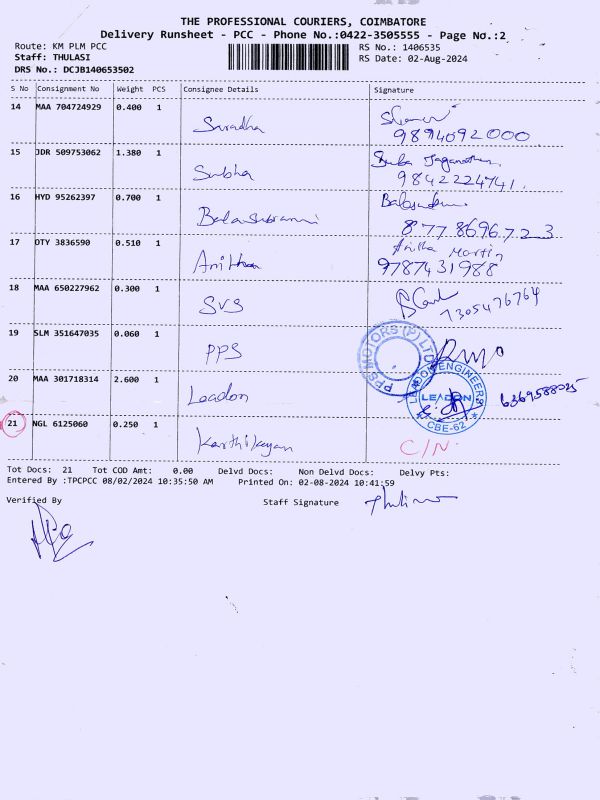 THE PROFESSIONAL COURIERS, COIMBATORE
Delivery Runsheet - PCC - Phone No.:0422-3505555 - Page No.:2
Route: KM PLM PCC
RS No.: 1406535
Staff: THULASI
RS Date: 02-Aug-2024
DRS No.: DCJB140653502
S No Consignment No Weight PCS Consignee Details Signature
14 MAA 704724929 0.400 1
Suradha
9894092000
15 JDR 509753062 1.380 1
Suba Jaganathan
Subha
9842224741.
16 HYD 95262397 0.700 1
Balasubramni
877 8696723
17 OTY 3836590 0.510 1
Anitha Martin
Anitha
9787431988
18 MAA 650227962 0.300 1
SVS
7305476764
19 SLM 351647035 0.060 1
PPS
PPS MOTORS (P) LTD
20 MAA 301718314 2.600 1
Leadon
LEADON ENGINEERS
LEADON
CBE-62
6369588025
21 NGL 6125060 0.250 1
Karthikeyan
C/N.
Tot Docs: 21 Tot COD Amt: 0.00 Delvd Docs: Non Delvd Docs: Delvy Pts:
Entered By :TPCPCC 08/02/2024 10:35:50 AM Printed On: 02-08-2024 10:41:59
Verified By
Staff Signature